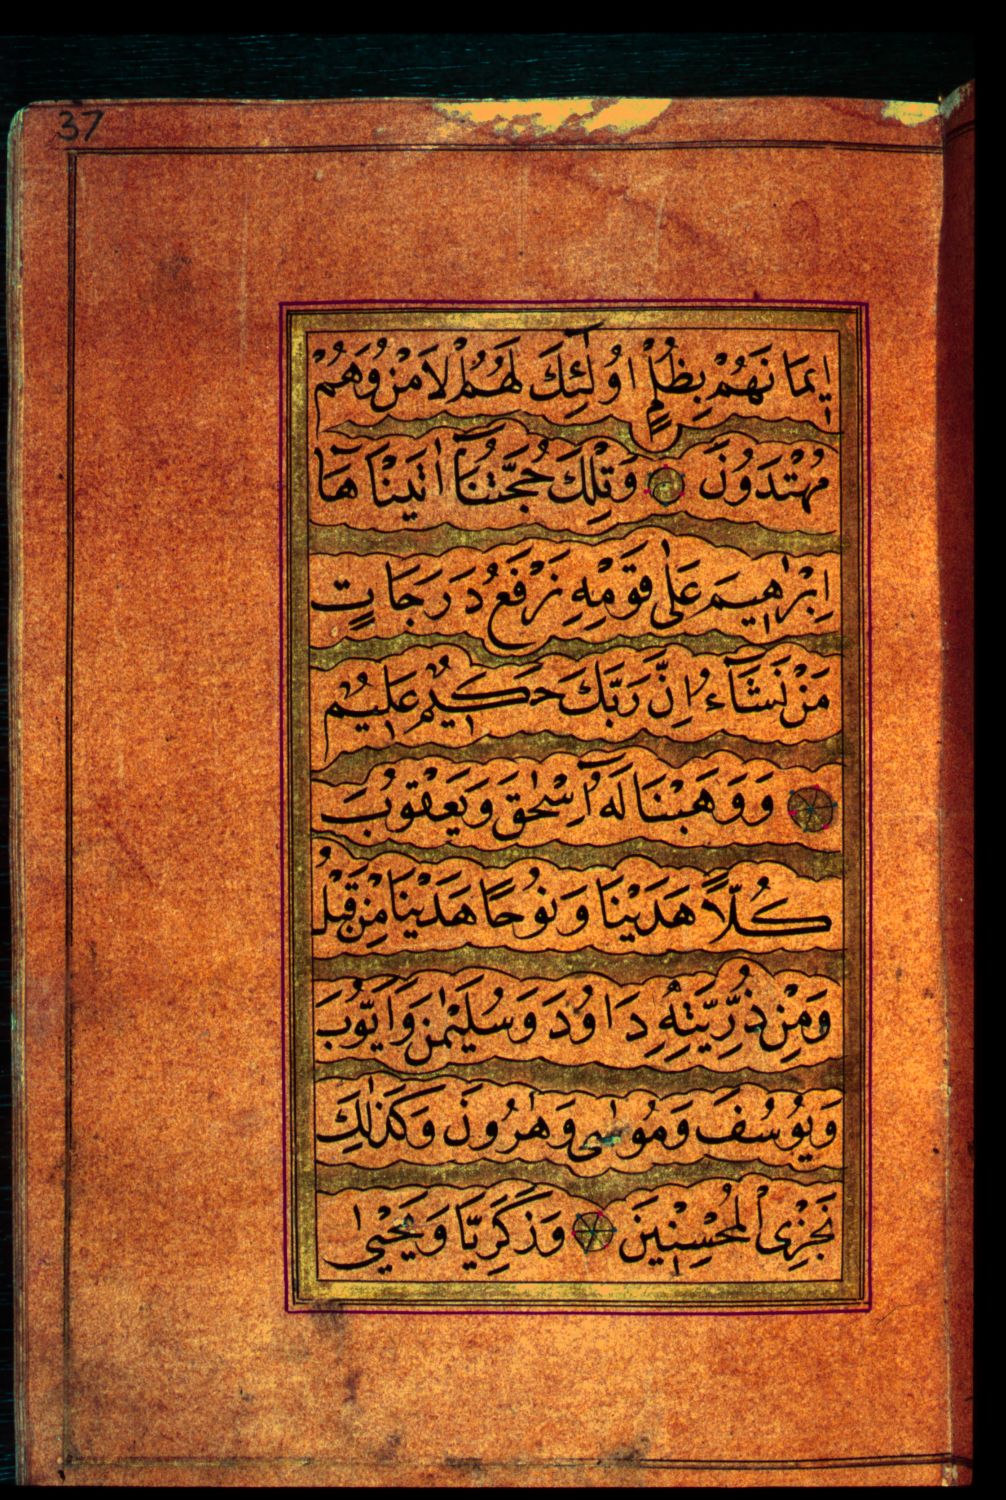 37
اِيمَانَهُمْ بِظُلْمٍ اُولٰٓئِكَ لَهُمُ الْاَمْنُ وَهُمْ
مُهْتَدُونَ وَتِلْكَ حُجَّتُنَٓا اٰتَيْنَاهَٓا
اِبْرٰهِيمَ عَلٰى قَوْمِهِ نَرْفَعُ دَرَجَاتٍ
مَنْ نَشَٓاءُ اِنَّ رَبَّكَ حَكِيمٌ عَلِيمٌ
وَوَهَبْنَا لَهُٓ اِسْحٰقَ وَيَعْقُوبَ
كُلًّا هَدَيْنَا وَنُوحًا هَدَيْنَا مِنْ قَبْلُ
وَمِنْ ذُرِّيَّتِهِ دَاوُدَ وَسُلَيْمٰنَ وَاَيُّوبَ
وَيُوسُفَ وَمُوسٰى وَهٰرُونَ وَكَذٰلِكَ
نَجْزِى الْمُحْسِنِينَ وَزَكَرِيَّا وَيَحْيٰى